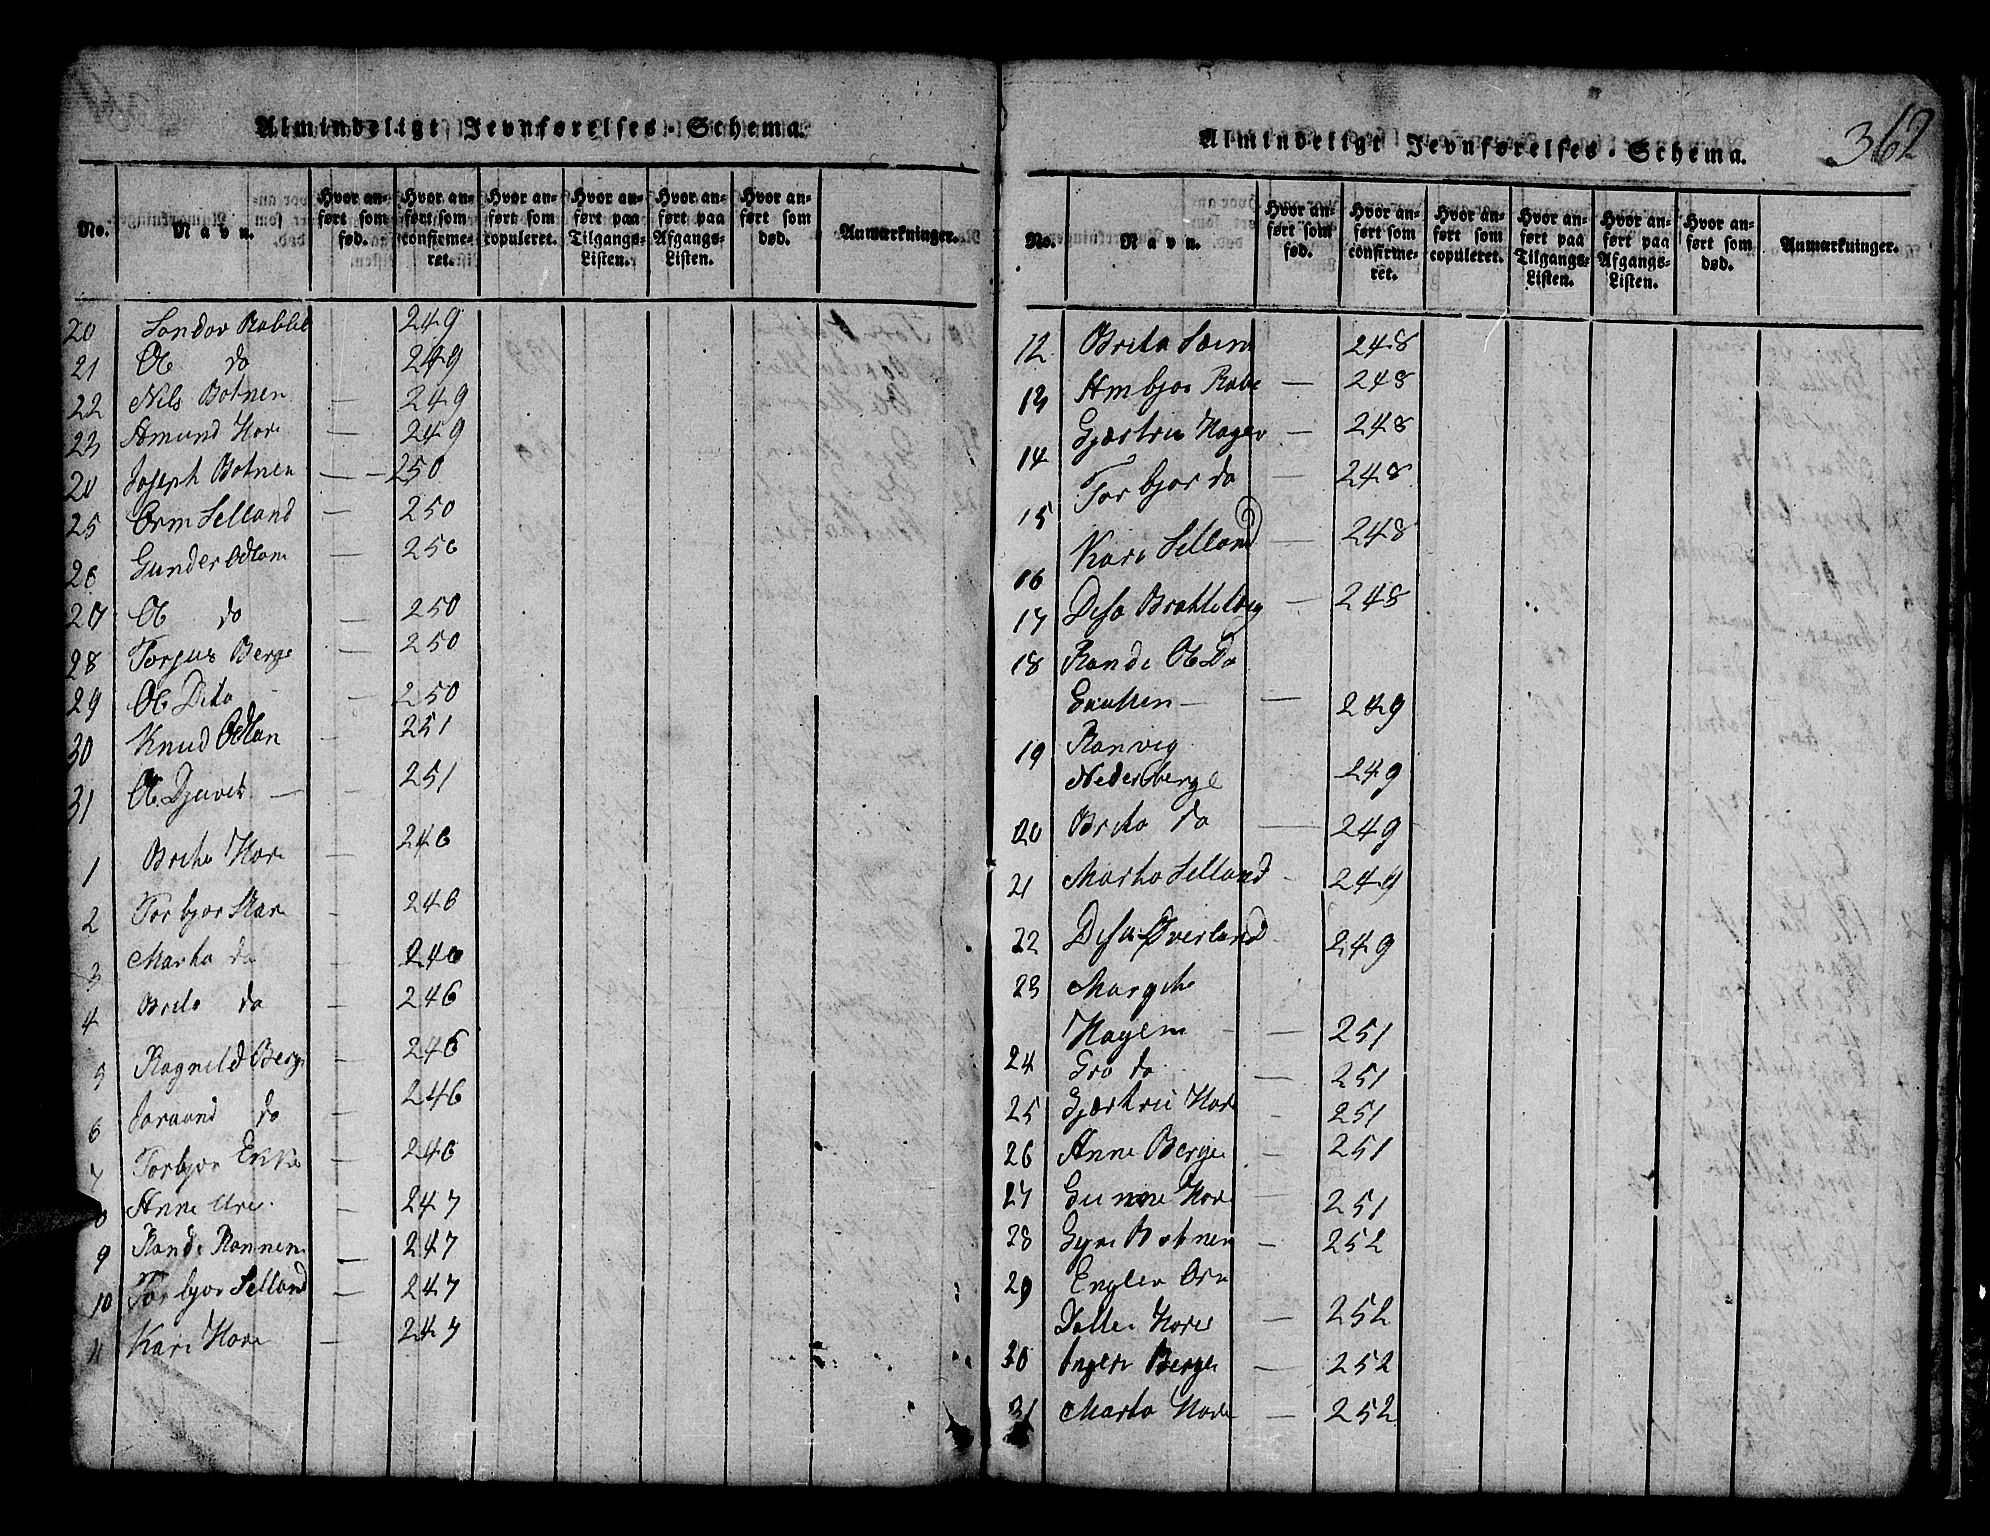 Almindeligt Jevnførelses-Schema.
No. Navn. Hvor anført som fød. Hvor anført som confirmeret. Hvor anført som copuleret. Hvor anført paa Tilgangs-Listen. Hvor anført paa Afgangs-Listen. Hvor anført som død. Anmærkninger.
20 Sondov 249
21 Ol do 249
22 Nils Botnen 249
23 Amund Hore — 249
24 Joseph Botnen — 250
25 Orm Selland — 250
26 Gunder Odlan — 250
27 Ol do — 250
28 Torjus Berge — 250
29 Ol Dito — 250
30 Knud Odlan — 251
31 Ol Djuvet — 251
1 Brita Hore — 246
2 Torbjor — 246
3 Marta do — 246
4 Brita do — 246
5 Ragnild Berge — 246
6 do — 246
7 Torbjor — 246
8 Anne Ure — 247
9 Rande Rønnen — 247
10 Torbjor Selland — 247
11 Kari Hore — 247
Almindeligt Jevnførelses-Schema.
362
No. Navn. Hvor anført som fød. Hvor anført som confirmeret. Hvor anført som copuleret. Hvor anført paa Tilgangs-Listen. Hvor anført paa Afgangs-Listen. Hvor anført som død. Anmærkninger.
12 Brita — 248
13 Ambjor Rabe — 248
14 Gjærtru Hagen — 248
15 Torbjor do — 248
16 Kari Selland — 248
17 Desa Brattebleg — 248
18 Rande Ols Do
— 249
19 Ranvig
Nedreberge 249
20 Brita do — 249
21 Marta Selland — 249
22 Desa Øverland 249
23 Margita
Hagen — 251
24 Gro do — 251
25 Gjærtru Hore 251
26 Anne Berge — 251
27 Gunne Hore — 251
28 Gyri Botnen — 252
29 Engler Orn
Datter Hore — 252
30 Ingeri Berge — 252
31 Marta Hore — 252